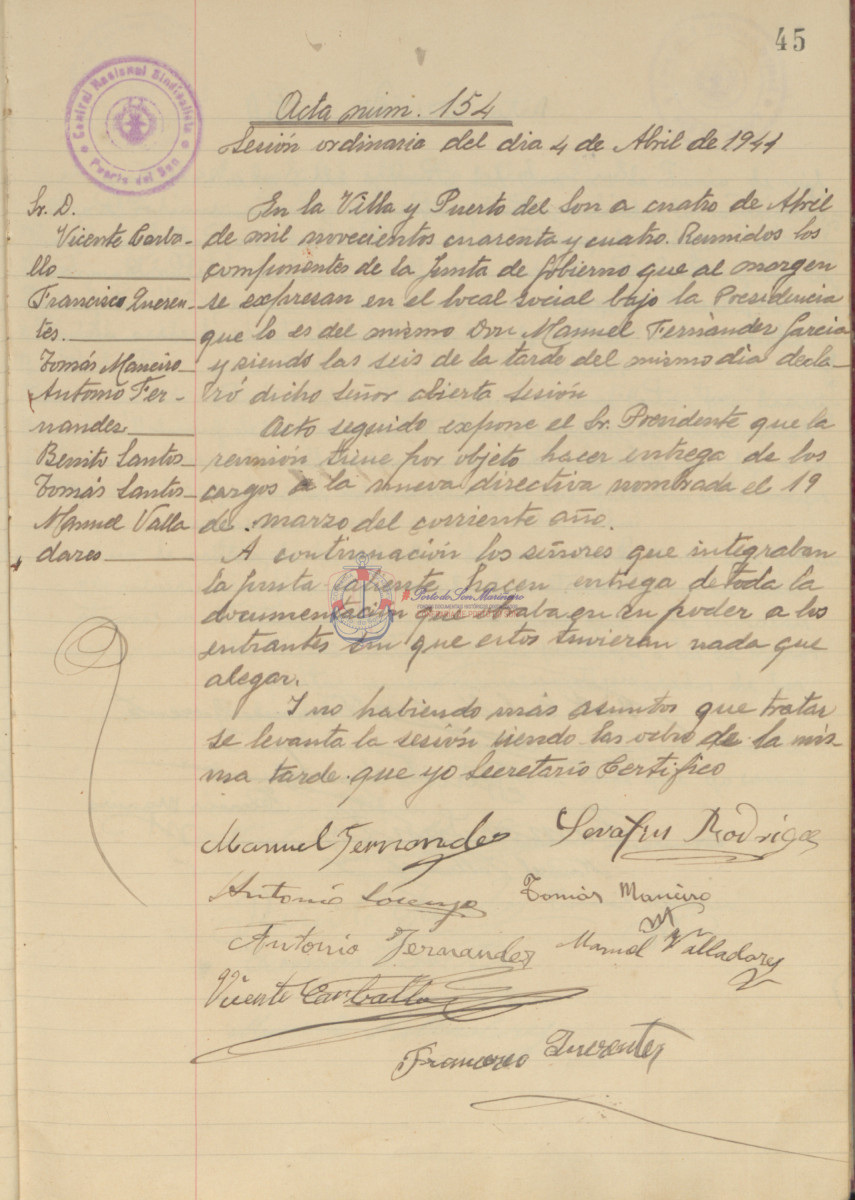 45
Central Nacional Sindicalista
Puerto del Son
Acta núm. 154
Sesión ordinaria del dia 4 de Abril de 1944
Sr. D.
Vicente Carba-
llo
Francisco Queren-
tes.
Tomás Maneiro
Antonio Fer-
nandez
Benito Santos
Tomás Santos
Manuel Valla
dares
En la Villa y Puerto del Son a cuatro de Abril
de mil novecientos cuarenta y cuatro. Reunidos los
componentes de la Junta de Gobierno que al margen
se expresan en el local social bajo la Presidencia
que lo es del mismo Don Manuel Fernàndez Garcia
y siendo las seis de la tarde del mismo dia decla-
ró dicho señor abierta sesión
Acto seguido expone el Sr. Presidente que la
reunión tiene por objeto hacer entrega de los
cargos a la nueva directiva nombrada el 19
de marzo del corriente año.
A continuación los señores que integraban
la junta saliente hacen entrega de toda la
documentación que obraba en su poder a los
entrantes sin que estos tuvieran nada que
alegar.
Y no habiendo más asuntos que tratar
se levanta la sesión siendo las ocho de la mis-
ma tarde que yo Secretario Certifico
Manuel Fernandez
Serafin Rodrigez
Antonio Lorenzo
Tomás Maneiro
Antonio Fernandez
Manuel Valladares
Vicente Carballo
Francisco Querentes
Porto do Son Mariñeiro